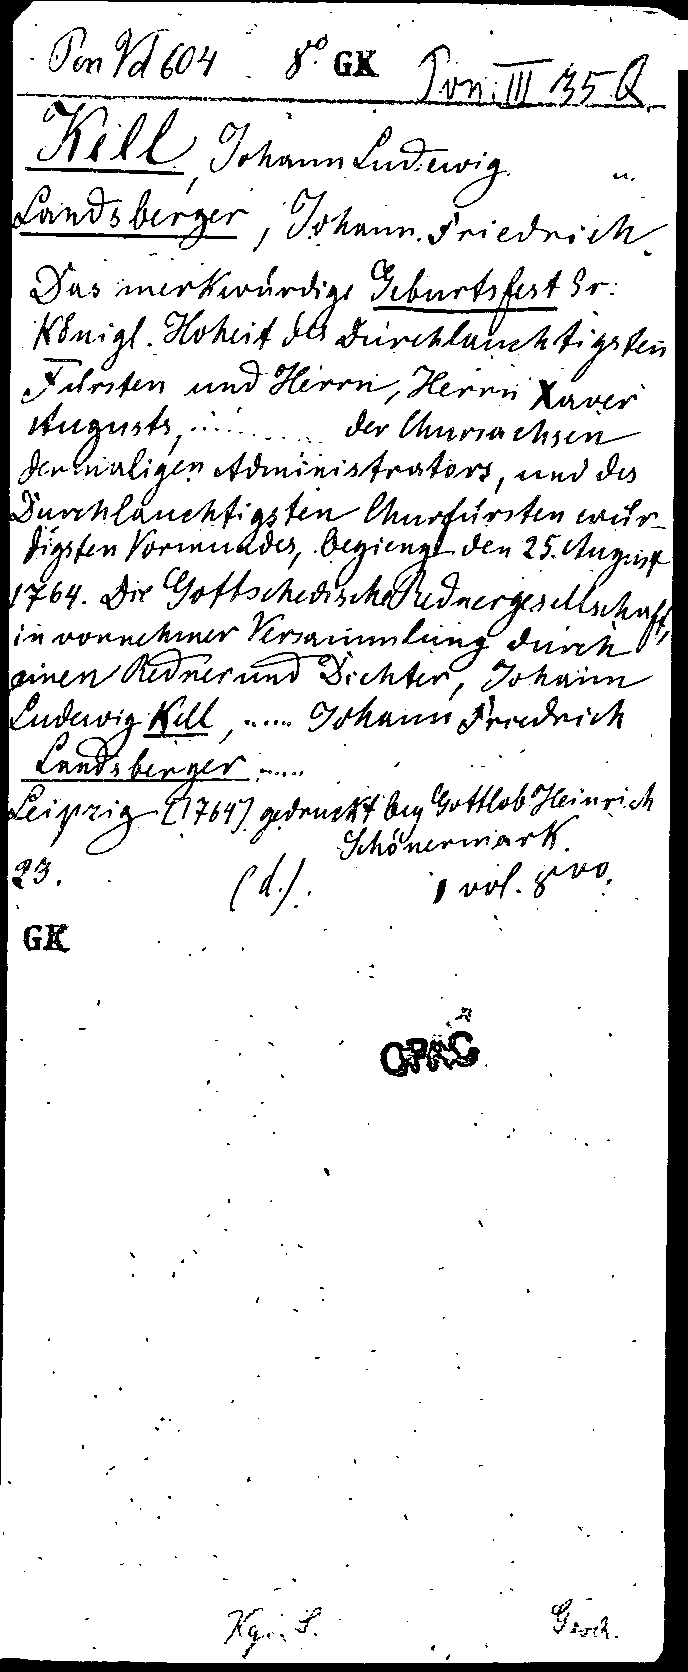 Pon Vd 604 8° GK Pon. III 35 Q.
Kell, Johann Ludewig u.
Landsberger, Johann Friedrich.
Das merkwürdige Geburtsfest Sr.
Königl. Hoheit des Durchlauchtigsten
Fürsten und Herrn, Herrn Xaver
Augusts, ........... der Chursachsen
dermaligen Administrators, und des
Durchlauchtigsten Churfürsten wür-
digsten Vormundes, begieng den 25. August
1764. Die Gottschedische Rednergesellschaft,
in vornehmer Versammlung durch
einen Redner und Dichter, Johann
Ludewig Kell, ..... Johann Friedrich
Landsberger .....
Leipzig (1764) gedruckt bey Gottlob Heinrich
Schönermark.
23. (d.). 1 vol. 8vo.
GK
OPAC
Kgr. S. Gesch.